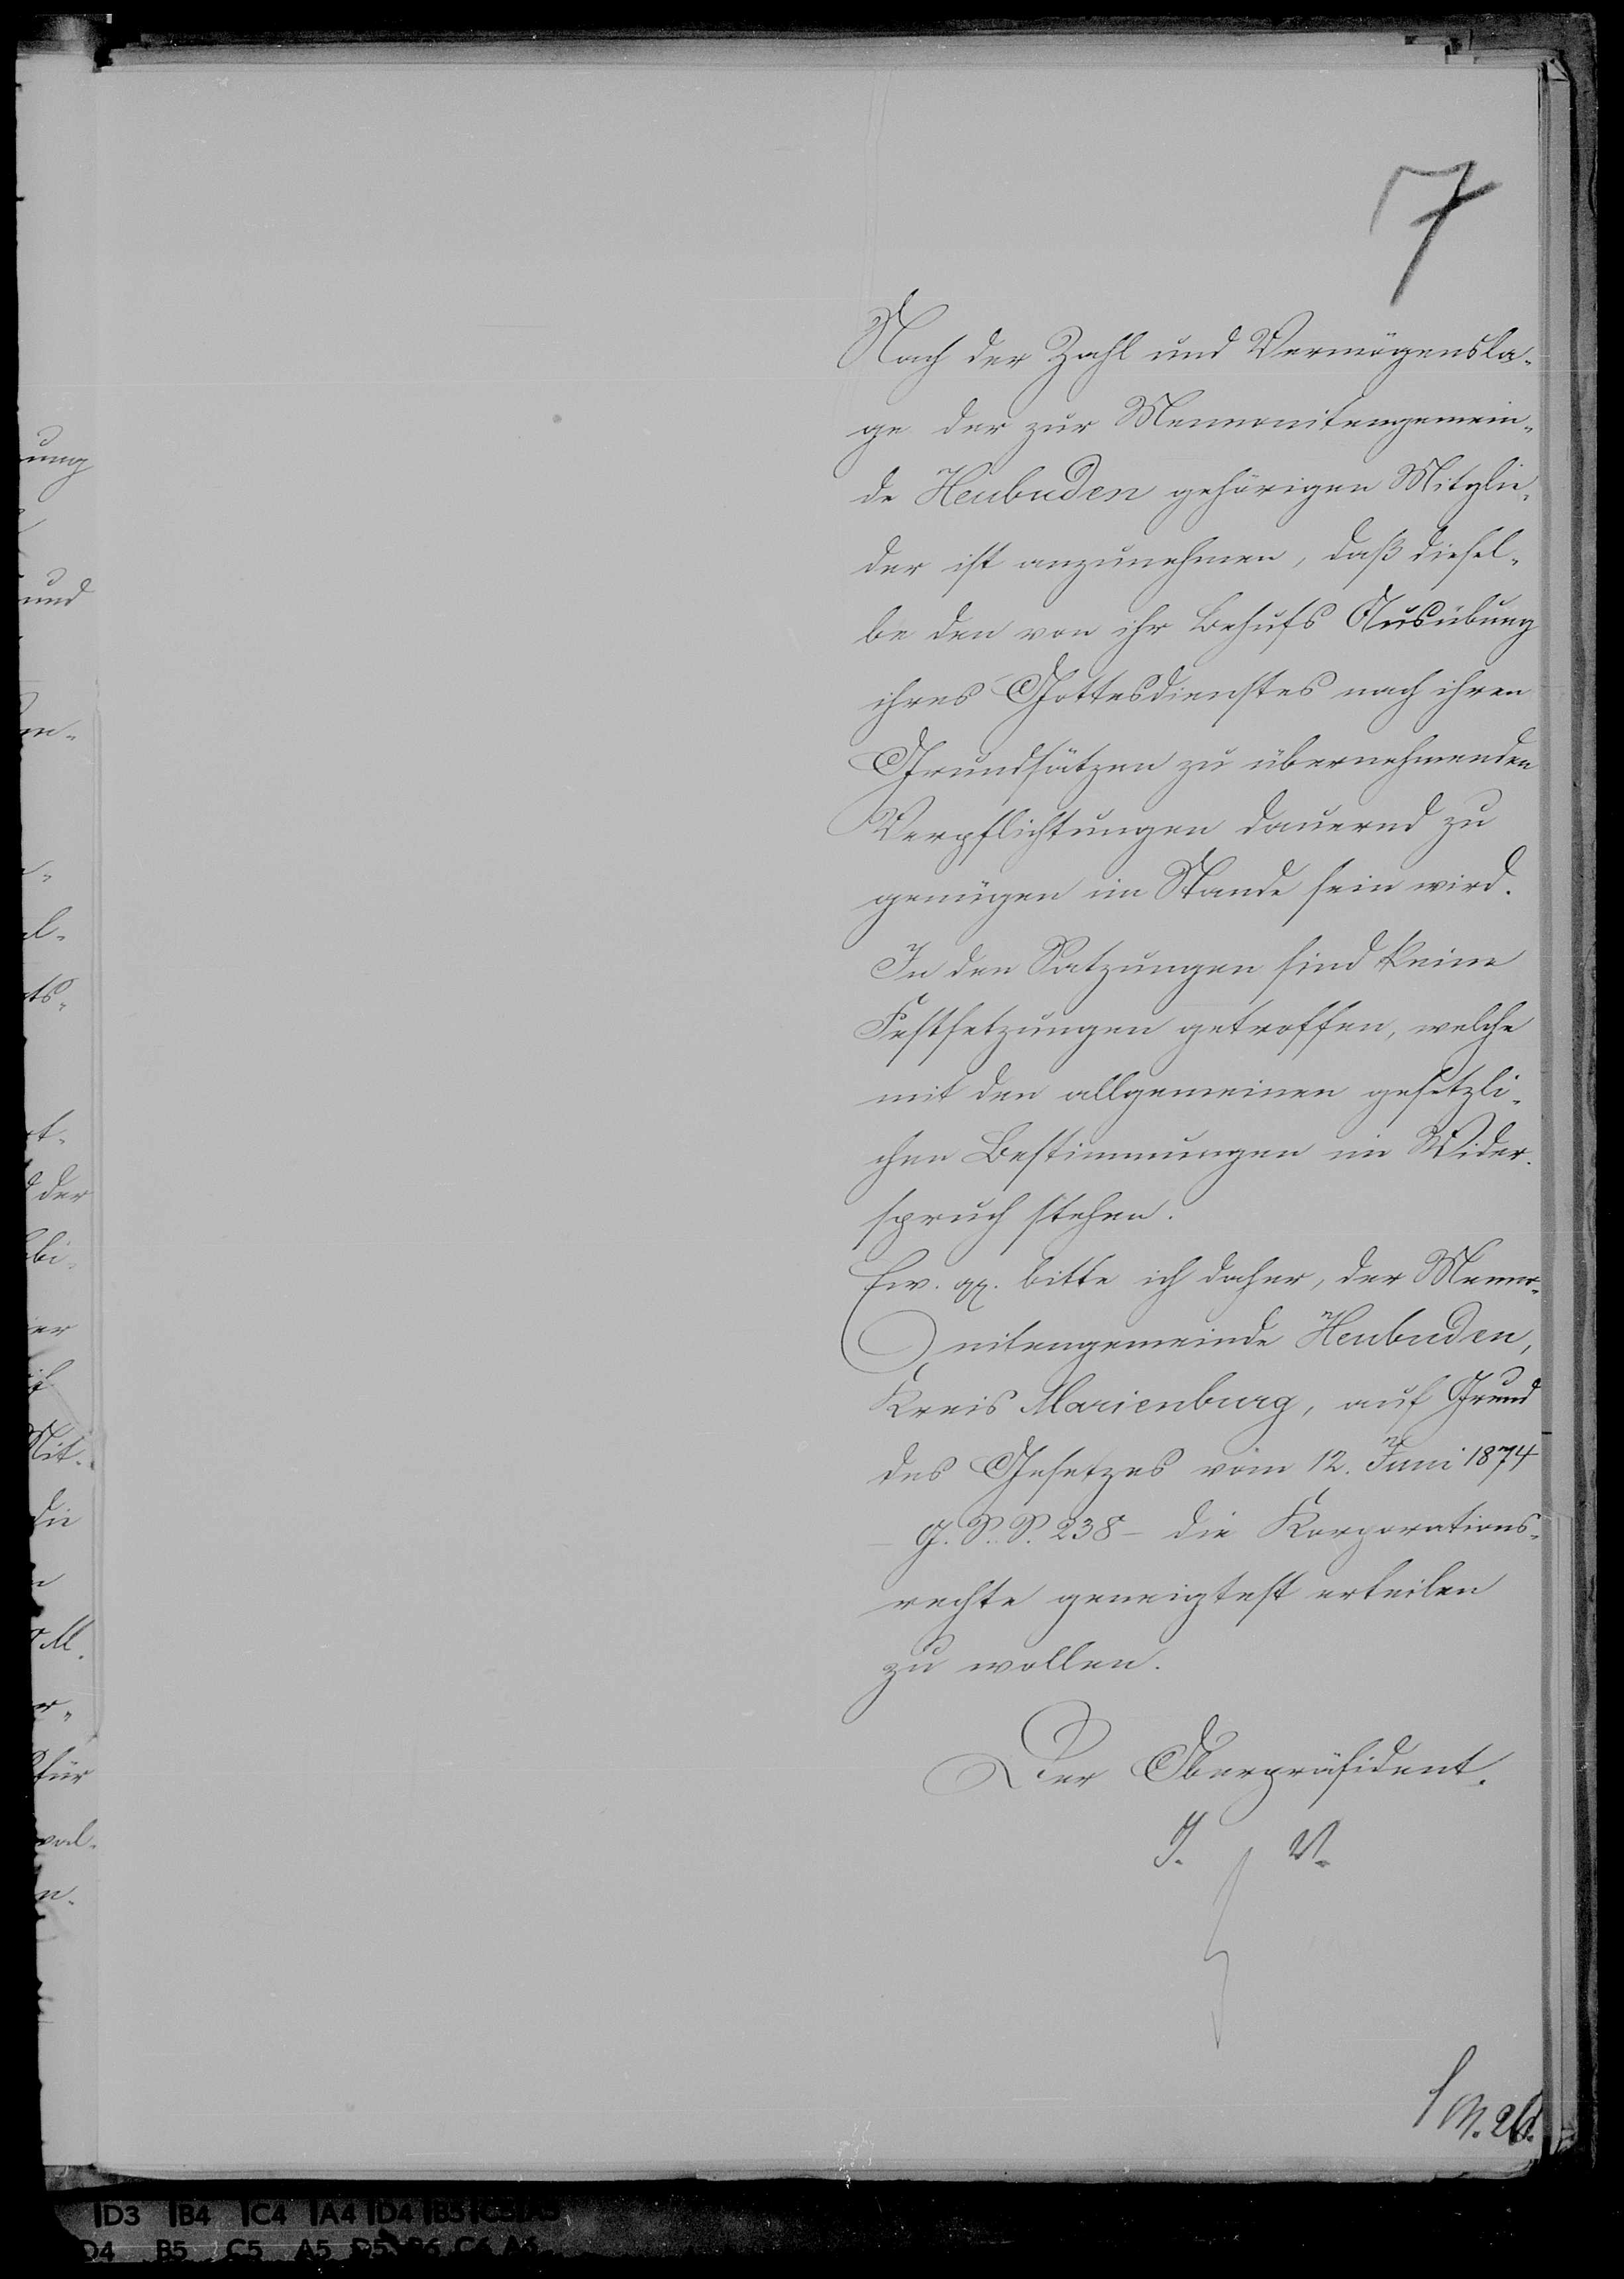 7
Nach der Zahl und Vermögensla-
ge der zur Mennonitengemein-
de Heubuden gehörigen Mitglie-
der ist anzunehmen, daß diesel-
be den von ihr behufs Ausübung
ihres Gottesdienstes nach ihren
Grundsätzen zu übernehmenden
Verpflichtungen dauernd zu
genügen im Stande sein wird.
In den Satzungen sind keine
Festsetzungen getroffen, welche
mit den allgemeinen gesetzli-
chen Bestimmungen im Wider-
spruch stehen.
Ew. pp. bitte ich daher, der Menno-
nitengemeinde Heubuden,
Kreis Marienburg, auf Grund
des Gesetzes vom 12. Juni 1874
- G. S. S. 238 - die Korporations-
rechte geneigtest erteilen
zu wollen.
Der Oberpräsident.
J. V.
ung
und
en-
el-
ts-
t-
der
bi-
er
Mit-
die
M.
r-
für
wal-
n-
D3 B4 C4 A4 D4 B5 C5 A5
D4 B5 C5 A5 D5 B6 C6 A6